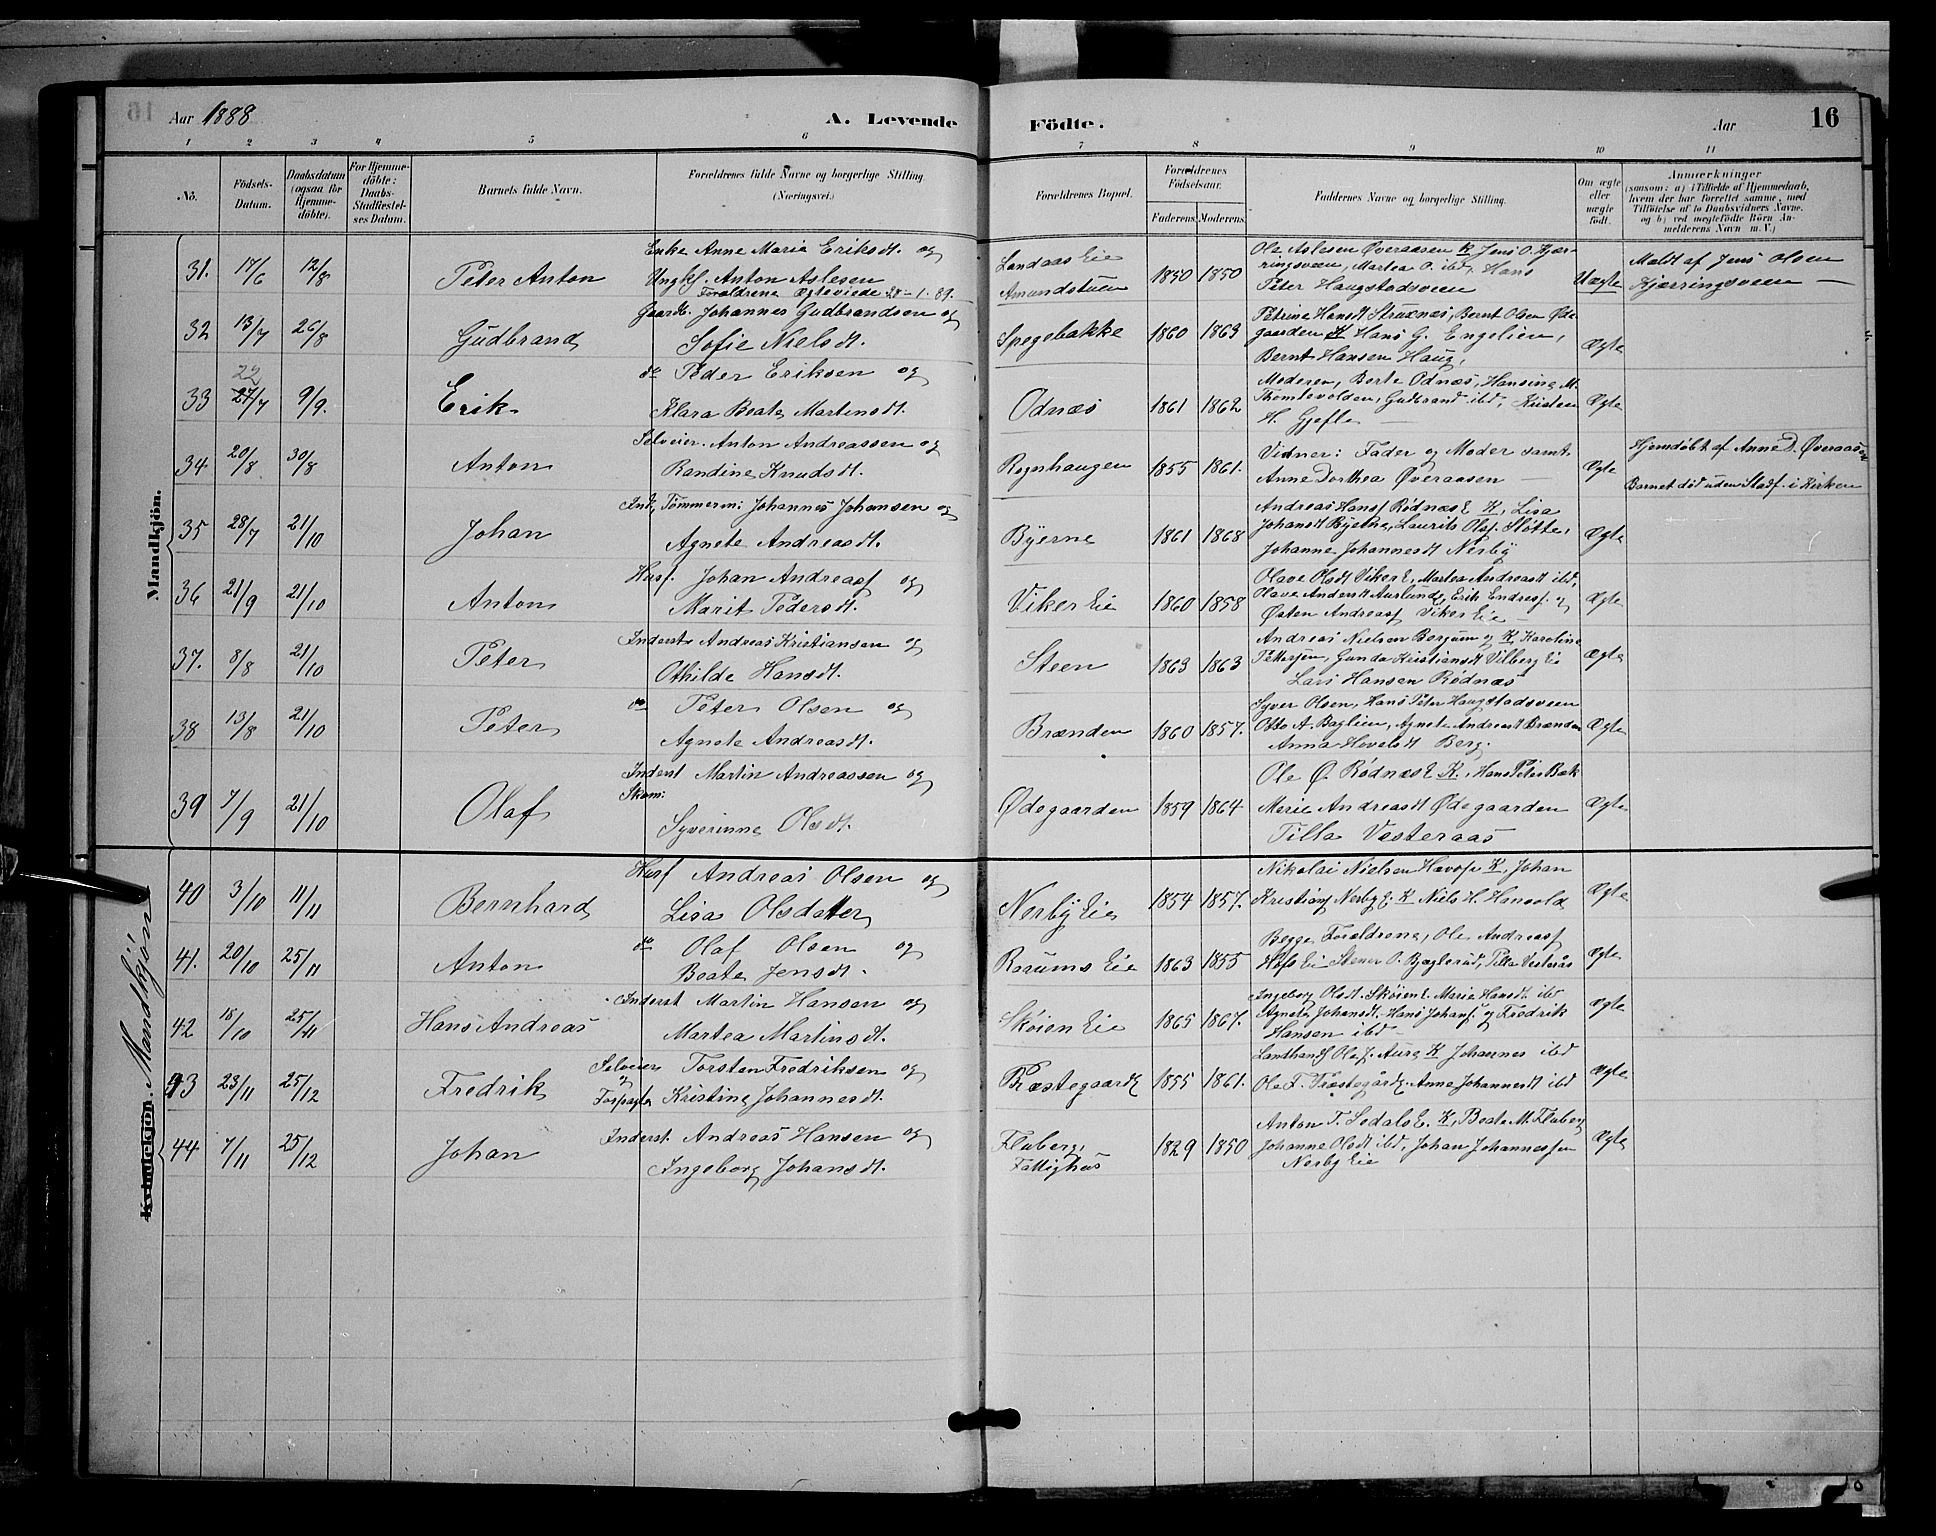 16
Aar 1888
A. Levende Födte.
Aar
16
1 2 3 4 5 6 7 8 9 10 11
No.
Födsels-Datum.
Daabsdatum (ogsaa for Hjemme-döbte).
For Hjemme-döbte: Daabs-Stadfæstel-ses Datum.
Barnets fulde Navn.
Forældrenes fulde Navne og borgerlige Stilling (Næringsvei.)
Forældrenes Bopæl.
Forældrenes Födselsaar.
Faderens. Moderens.
Faddernes Navne og borgerlige Stilling.
Om ægte eller uægte födt.
Anmærkninger
(saasom: a) i Tilfælde af Hjemmedaab,
hvem der har forrettet samme, med
Tilföielse af to Daabsvidners Navne.
og b) ved uægtefödte Börn An-
melderens Navn m. V.)
Mandkjön.
31. 17/6 12/8 Peter Anton
Enke Anne Marie Eriksdt. og
Ungkl. Anton Aslesen
Forældrene Ægteviede 28-1-89.
Landaas Eie
Amundstuen
1850 1850
Ole Aslesen Øveraasen K Jens O. Kjær-
ringsveen, Martea O. ibd, Hans
Peter Haugstadsveen
Uægte
Meldt af Jens Olsen
Kjærringsveen —
32 13/7 26/8 Gudbrand
Gaardb. Johannes Gudbrandsen og
Sofie Nielsdt.
Spegebakke 1860 1863
Petrine Hansdt Struxnæs, Bernt Olsen Øde
gaarden K Hans G. Engelien,
Bernt Hansen Haug,
Ægte
33 22 27/7 9/9. Erik
do Peder Eriksen og
Klara Beate Martinsdt.
Odnæs 1861 1862
Moderen, Berte Odnæs, Hansine M.
Thomlevolden, Gudbrand ibd, Kristen
H. Gjefle —
Ægte
34 20/8 30/8 Anton
Selveier. Anton Andreassen og
Randine Knudsdt.
Rognhaugen 1855 1861.
Vidner: Fader og Moder samt
Anne Dorthea Øveraasen —
Ægte
Hjemdöbt af Anne D. Øveraasen
Barnet död uden Stadf. i Kirken
35 28/7 21/10 Johan
Ind, Tömmerm: Johannes Johansen og
Agnete Andreasdt.
Byerne 1861 1868
Andreas Hansf Rödnæs E K, Lisa
Johansdt Byerne, Laurits Olsf. Slötte,
Johanne Johannesdt Nerby
Ægte
36 21/9 21/10 Anton
Husf. Johan Andreasf og
Marit Pedersdt.
Viker Eie 1860 1858
Olave Olsdt Viker E, Martea Andreasdt ibd,
Olave Andersdt Aurlund, Erik Endresf. og
Østen Andreasf Viker Eie —
Ægte
37. 8/8 21/10 Peter
Inderst Andreas Kristiansen og
Othilde Hansdt.
Steen 1863 1863
Andreas Nielsen Bergum og K, Karoline
Pettersen, Gunda Kristiansdt Vilberg Eie
Lars Hansen Rödnæs
Ægte
38 13/8 21/10 Peter
do Peter Olsen og
Agnete Andreasdt.
Brænden 1860 1857.
Syver Olsen, Hans Peter Haugstadsveen
Otto A. Baglien, Agnete Andreasdt Brænden
Anna Hovelsdt Berg.
Ægte
39 7/9 21/10 Olaf
Inderst Martin Andreassen og
Skom:
Syverinne Olsdt.
Ødegaarden 1859 1864
Ole Ø. Rödnæs E K., Hans Peter Bæk
Marie Andreasdt Ødegaarden
Tilla Vesteraas
Ægte
Kvindekjön. Mandkjön
40 3/10 11/11 Bernhard
Husf Andreas Olsen og
Lisa Olsdatter
Nerby Eie 1854 1857.
Nikolai Nielsen K, Johan
Kristiansf Nerby E. K Niels H. Hansvold
Ægte
41. 20/10 25/11 Anton
do Olaf Olsen og
Beate Jensdt.
Rosums Eie 1863 1855
Begge Forældrene, Ole Andreasf
Hofs Eie Stener O. Bjaglerud, Tilla Vesterås
Ægte
42 18/10 25/11 Hans Andreas
Inderst Martin Hansen og
Martea Martinsdt.
Sköien Eie 1865 1867.
Ingeborg Olsdt. Sköien E. Marie Hansdt. ibd
Agnete Johansdt. Hans Johansf. og Fredrik
Hansen ibd —
Ægte
43 23/11 25/12 Fredrik
Selveier og Forpagter
Torsten Fredriksen og
Kristine Johannesdt.
Præstegaard 1855 1861.
Landhandl Olsf. Aure K Johannes ibd
Ole F. Præstegård, Anne Johannesdt ibd
Ægte
44 7/11 25/12 Johan
Inderst. Andreas Hansen og
Ingeborg Johansdt.
Fluberg,
Fattighus
1829 1850
Anton T. Sedals E. K, Beate M. Fluberg
Johanne Olsdt ibd, Johan Johannessen
Nerby Eie
Ægte